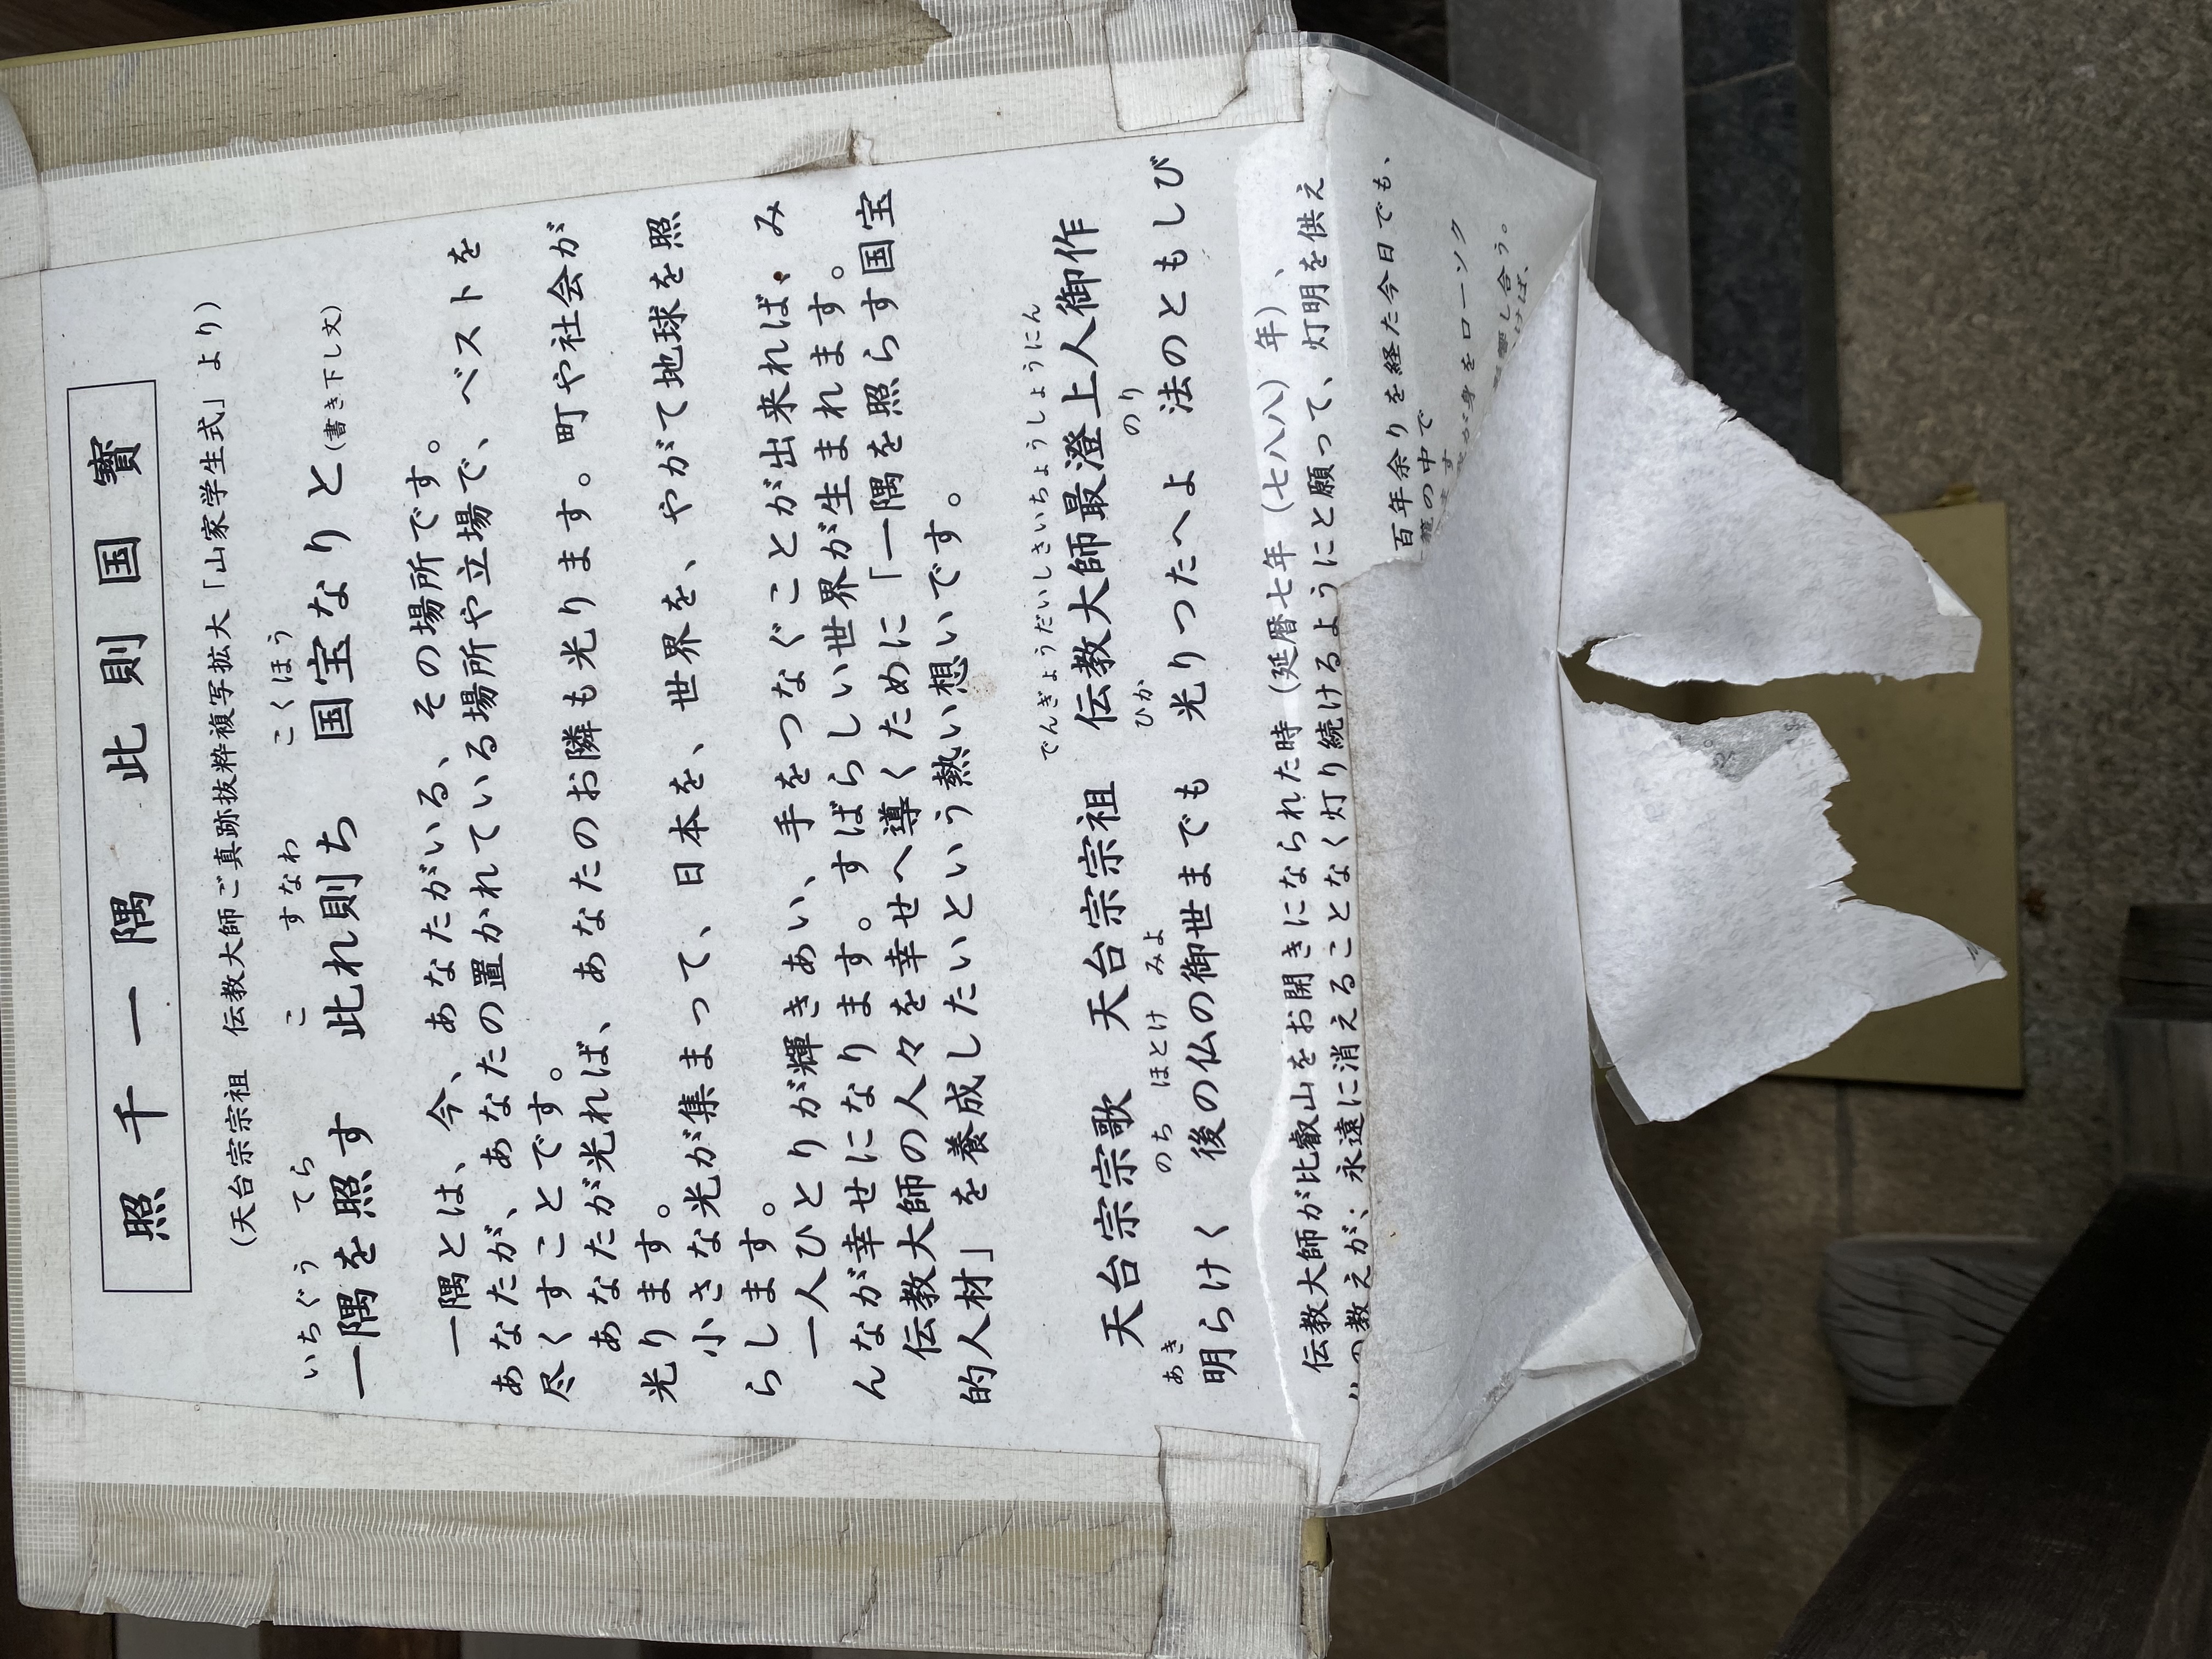 照千一隅此則国寶
（天台宗宗祖　伝教大師ご真跡抜粋複写拡大「山家学生式」より）
いちぐう　てら　こ　すなわ　こくほう
一隅を照す　此れ則ち　国宝なりと（書き下し文）
一隅とは、今、あなたがいる、その場所です。
あなたが、あなたの置かれている場所や立場で、ベストを
尽くすことです。
あなたが光れば、あなたのお隣も光ります。町や社会が
光ります。
小さな光が集まって、日本を、世界を、やがて地球を照
らします。
一人ひとりが輝きあい、手をつなぐことが出来れば、み
んなが幸せになります。すばらしい世界が生まれます。
伝教大師の人々を幸せへ導くために「一隅を照らす国宝
的人材」を養成したいという熱い想いです。
でんぎょうだいしさいちょうしょうにん
天台宗宗歌　天台宗宗祖　伝教大師最澄上人御作
あき　のち　ほとけ　みよ　ひか　のり
明らけく　後の仏の御世までも　光りつたへよ　法のともしび
伝教大師が比叡山をお開きになられた時（延暦七年（七八八）年）、
の教えが、永遠に消えることなく灯り続けるようにと願って、灯明を供え
百年余りを経た今日でも、
籠の中で
身をローソク
し合う。